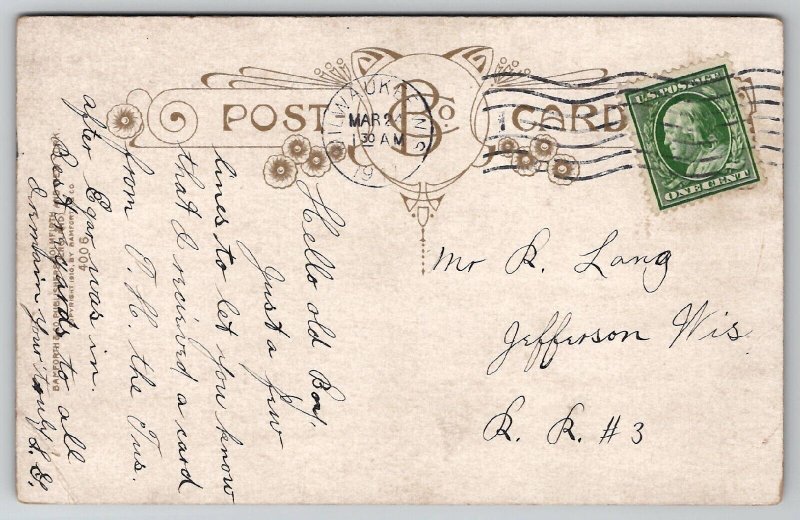 POST CARD
B Co
MILWAUKEE, WIS.
MAR 2
1 30 AM
19
U.S. POSTAGE
ONE CENT
Hello old Boy.
Just a few
lines to let you know
that I recieved a card
from T. H. the Tus.
after Egar was in.
Best regards to all
I remain your truly S. E.
4006
Mr R. Lang
Jefferson Wis.
R. R. #3